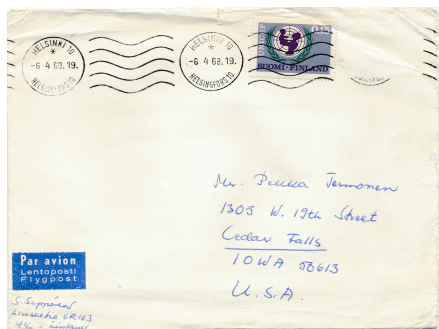 HELSINKI 10
-6 4 68. 19.
HELSINGFORS 10
HELSINKI 10
-6 4 68. 19.
HELSINGFORS 10
0,45
SUOMI-FINLAND
Mr. Pekka Termonen
1305 W. 19th Street
Cedar Falls
IOWA 50613
U.S.A.
Par avion
Lentoposti
Flygpost
S.